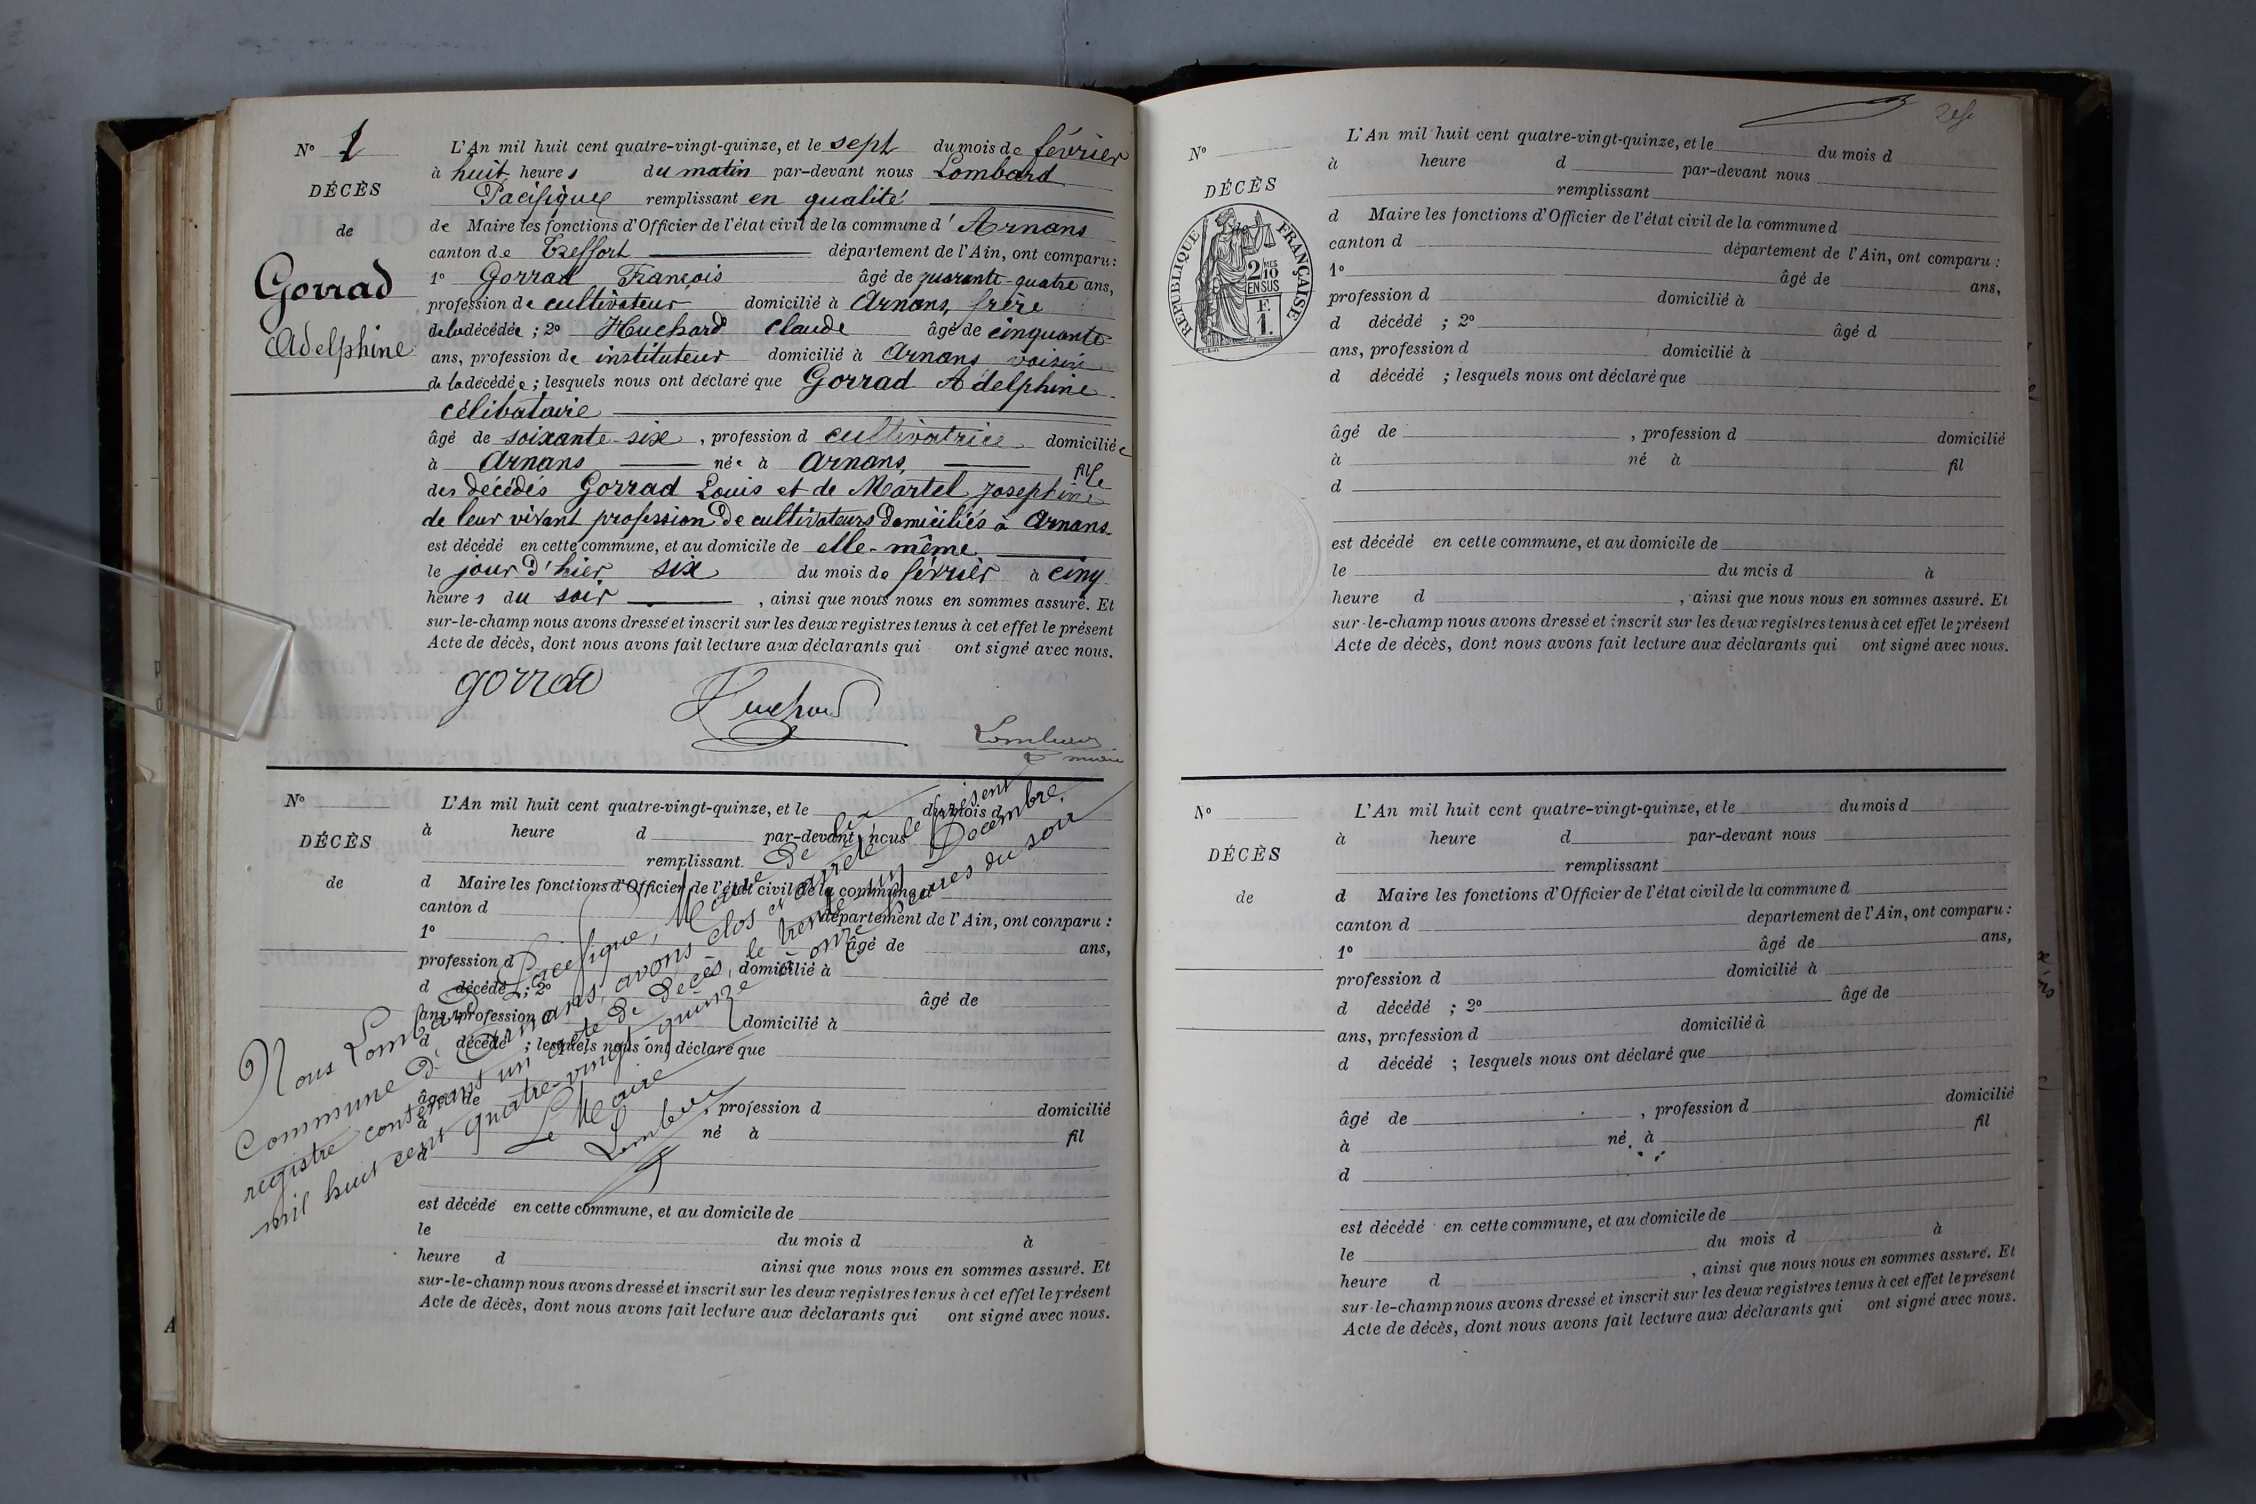 N° 1
DÉCÈS
de
Gorrad
Adelphine
L'An mil huit cent quatre-vingt-quinze, et le sept du mois de février
à huit heures du matin par-devant nous Lombard
Pacifique remplissant en qualité
de Maire les fonctions d'Officier de l'état civil de la commune d'Arnans
canton de Treffort département de l'Ain, ont comparu :
1° Gorrad François âgé de quarante-quatre ans,
profession de cultivateur domicilié à Arnans, frère
de la décédée ; 2° Huchard Claude âgé de cinquante
ans, profession de instituteur domicilié à Arnans voisin
de la décédée ; lesquels nous ont déclaré que Gorrad Adelphine
célibataire
âgé de soixante-six, profession d cultivatrice domiciliée
à Arnans née à Arnans, fille
des décédés Gorrad Louis et de Martel Josephine
de leur vivant profession de cultivateurs domiciliés à Arnans
est décédé en cette commune, et au domicile de elle-même
le jour d'hier six du mois de février à cinq
heures du soir, ainsi que nous nous en sommes assuré. Et
sur-le-champ nous avons dressé et inscrit sur les deux registres tenus à cet effet le présent
Acte de décès, dont nous avons fait lecture aux déclarants qui ont signé avec nous.
gorrad Huchard
Lombard
N°
DÉCÈS
de
L'An mil huit cent quatre-vingt-quinze, et le du mois d
à heure d par-devant nous
remplissant
d Maire les fonctions d'Officier de l'état civil de la commune d
canton d département de l'Ain, ont comparu :
1° âgé de ans,
profession d domicilié à
d décédé ; 2° âgé de
ans, profession d domicilié à
d décédé ; lesquels nous ont déclaré que
âgé de , profession d domicilié
à né à fil
d
est décédé en cette commune, et au domicile de
le du mois d à
heure d ainsi que nous nous en sommes assuré. Et
sur-le-champ nous avons dressé et inscrit sur les deux registres tenus à cet effet le présent
Acte de décès, dont nous avons fait lecture aux déclarants qui ont signé avec nous.
Nous Lombard Pacifique, Maire de la
Commune d'Arnans, avons clos et arrêté le présent
registre contenant un acte de décès, le trente-un Décembre,
mil huit cent quatre-vingt quinze à onze heures du soir
Le Maire
Lombard
N°
DÉCÈS
RÉPUBLIQUE FRANÇAISE
2 MES
10
EN SUS
F.
1.
L'An mil huit cent quatre-vingt-quinze, et le du mois d
à heure d par-devant nous
remplissant
d Maire les fonctions d'Officier de l'état civil de la commune d
canton d département de l'Ain, ont comparu :
1° âgé de ans,
profession d domicilié à
d décédé ; 2° âgé d
ans, profession d domicilié à
d décédé ; lesquels nous ont déclaré que
âgé de , profession d domicilié
à né à fil
d
est décédé en cette commune, et au domicile de
le du mois d à
heure d , ainsi que nous nous en sommes assuré. Et
sur-le-champ nous avons dressé et inscrit sur les deux registres tenus à cet effet le présent
Acte de décès, dont nous avons fait lecture aux déclarants qui ont signé avec nous.
N°
DÉCÈS
de
L'An mil huit cent quatre-vingt-quinze, et le du mois d
à heure d par-devant nous
remplissant
d Maire les fonctions d'Officier de l'état civil de la commune d
canton d departement de l'Ain, ont comparu :
1° âgé de ans,
profession d domicilié à
d décédé ; 2° âgé de
ans, profession d domicilié à
d décédé ; lesquels nous ont déclaré que
âgé de , profession d domicilié
à né à fil
d
est décédé en cette commune, et au domicile de
le du mois d à
heure d , ainsi que nous nous en sommes assuré. Et
sur-le-champ nous avons dressé et inscrit sur les deux registres tenus à cet effet le présent
Acte de décès, dont nous avons fait lecture aux déclarants qui ont signé avec nous.